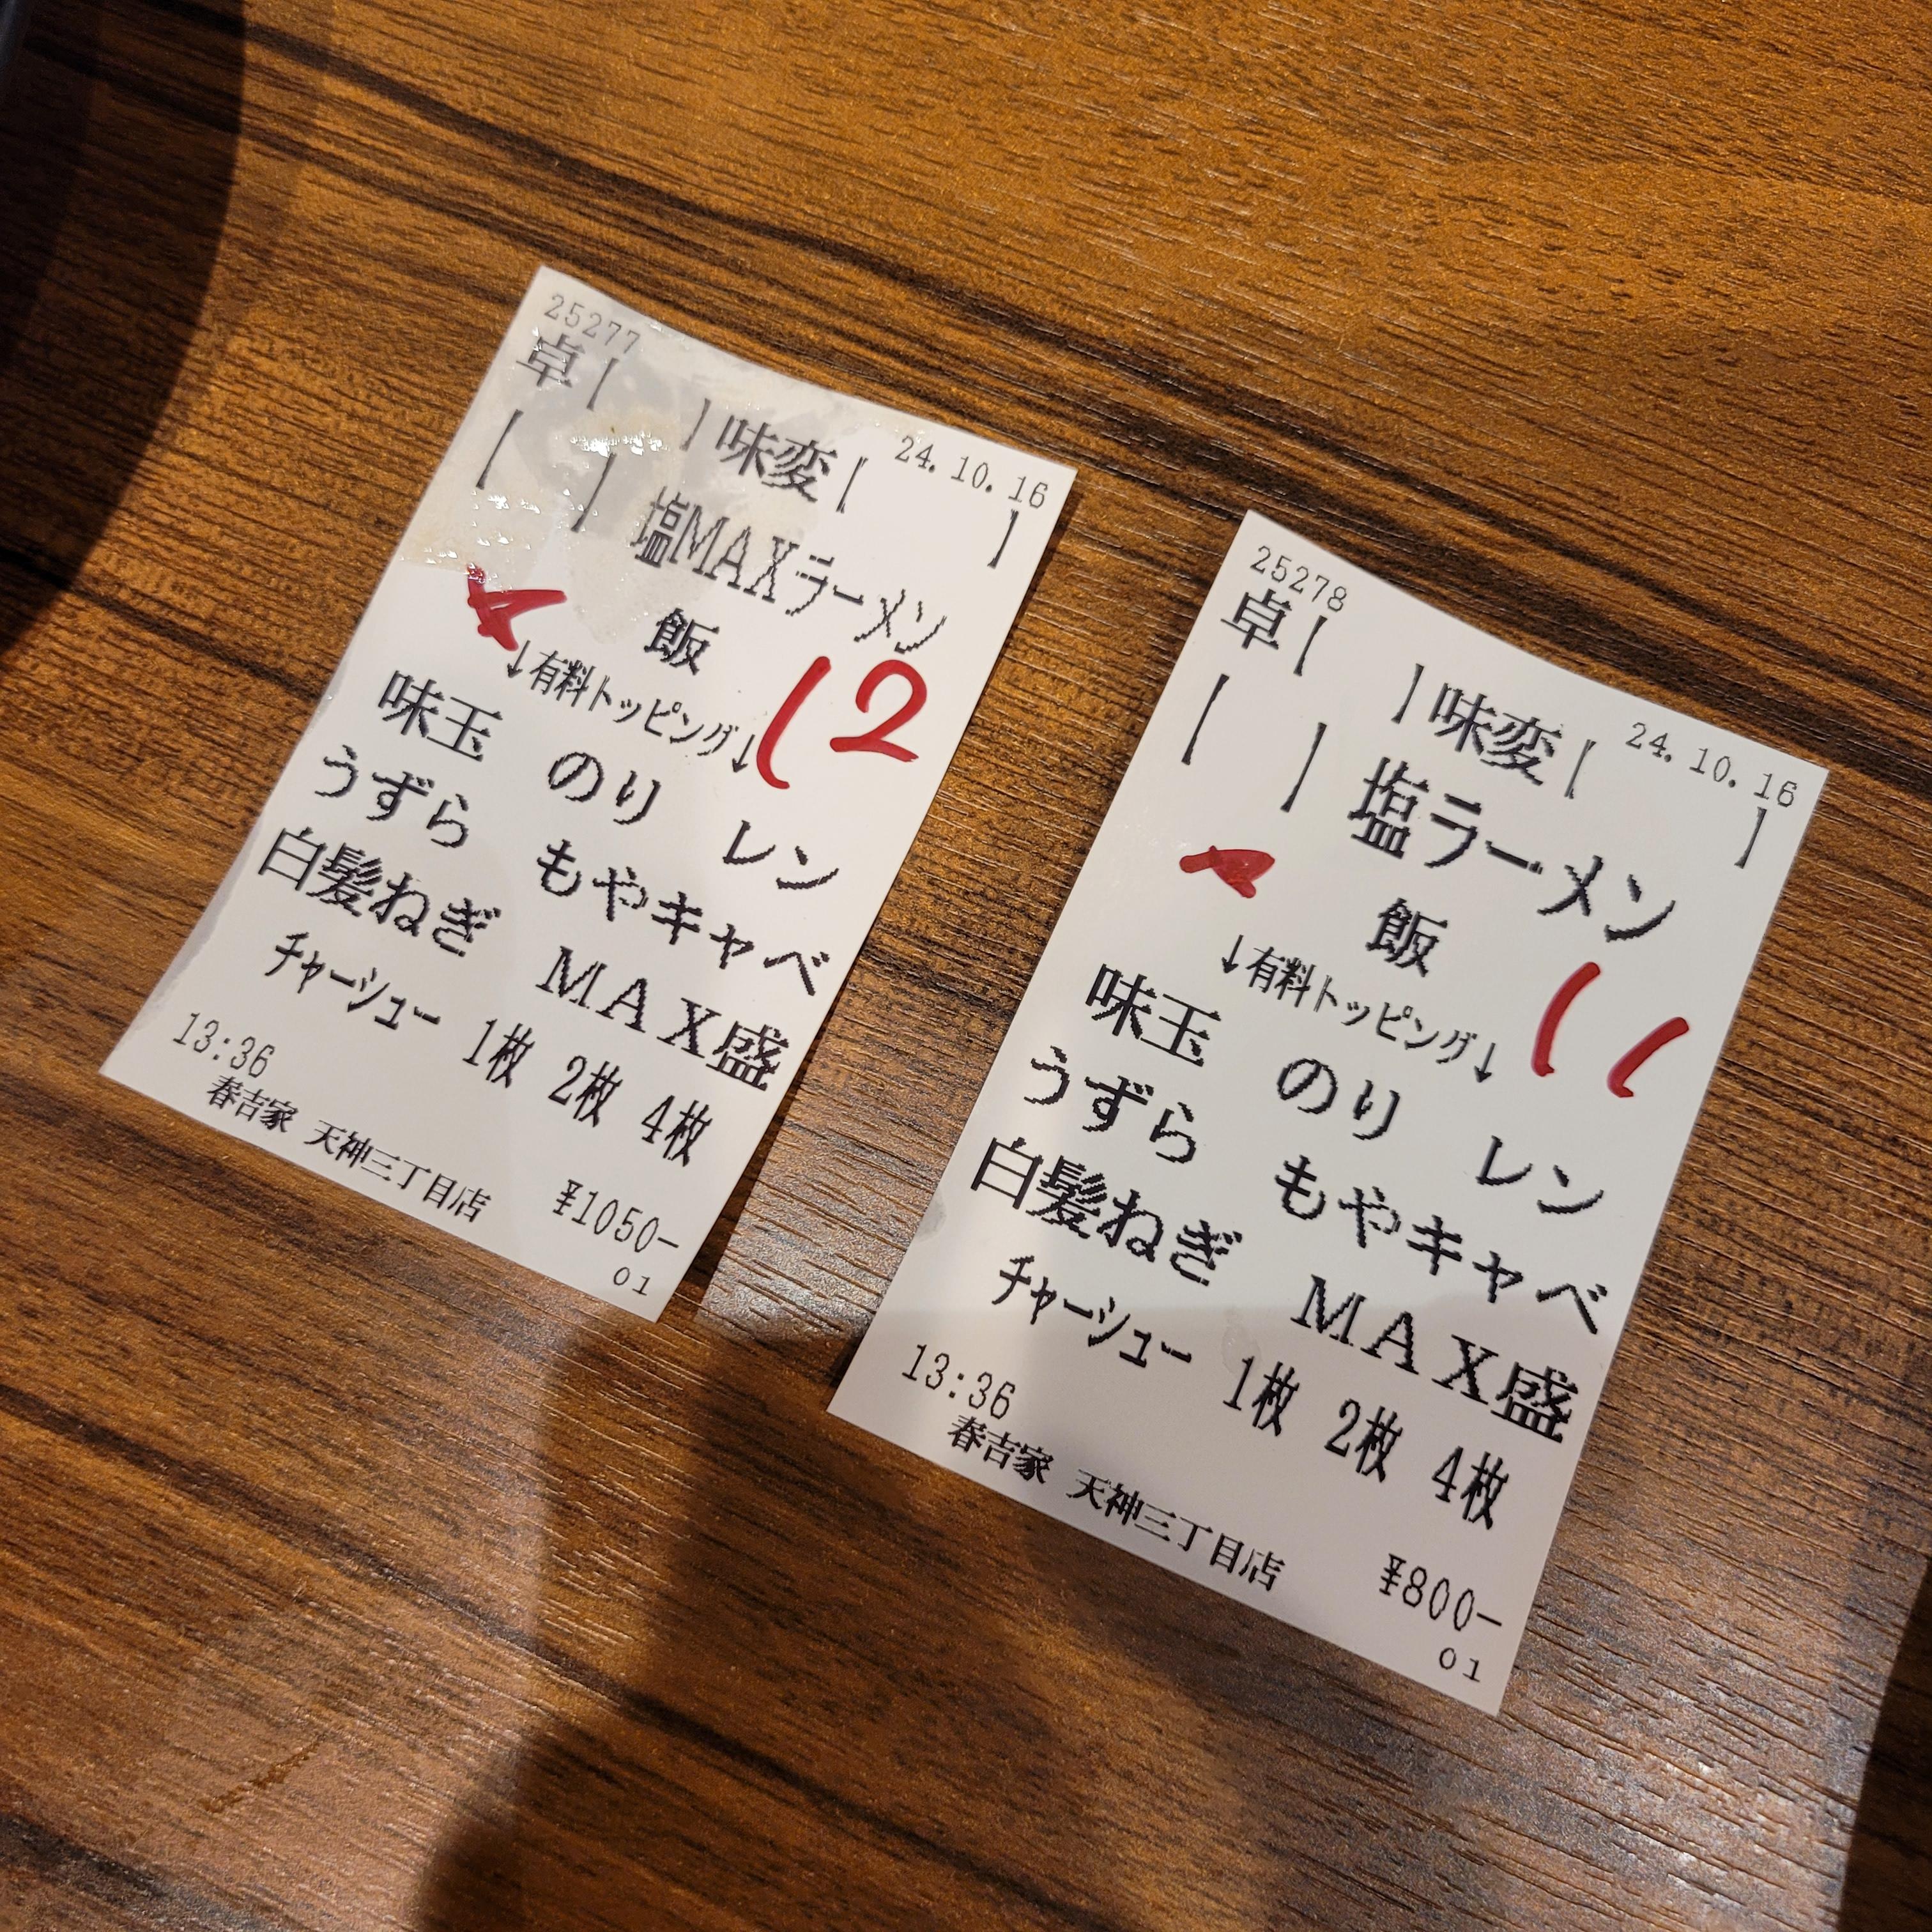 25277
24.10.16
卓[ ]味変[ ]
[ ] 塩MAXラーメン
飯
↓有料トッピング↓
12
味玉 のり レン
うずら もやキャベ
白髪ねぎ MAX盛
チャーシュー 1枚 2枚 4枚
13:36
¥1050-
春吉家 天神三丁目店
01
25278
24.10.16
卓[ ]味変[ ]
[ ] 塩ラーメン
飯
↓有料トッピング↓
11
味玉 のり レン
うずら もやキャベ
白髪ねぎ MAX盛
チャーシュー 1枚 2枚 4枚
13:36
¥800-
春吉家 天神三丁目店
01